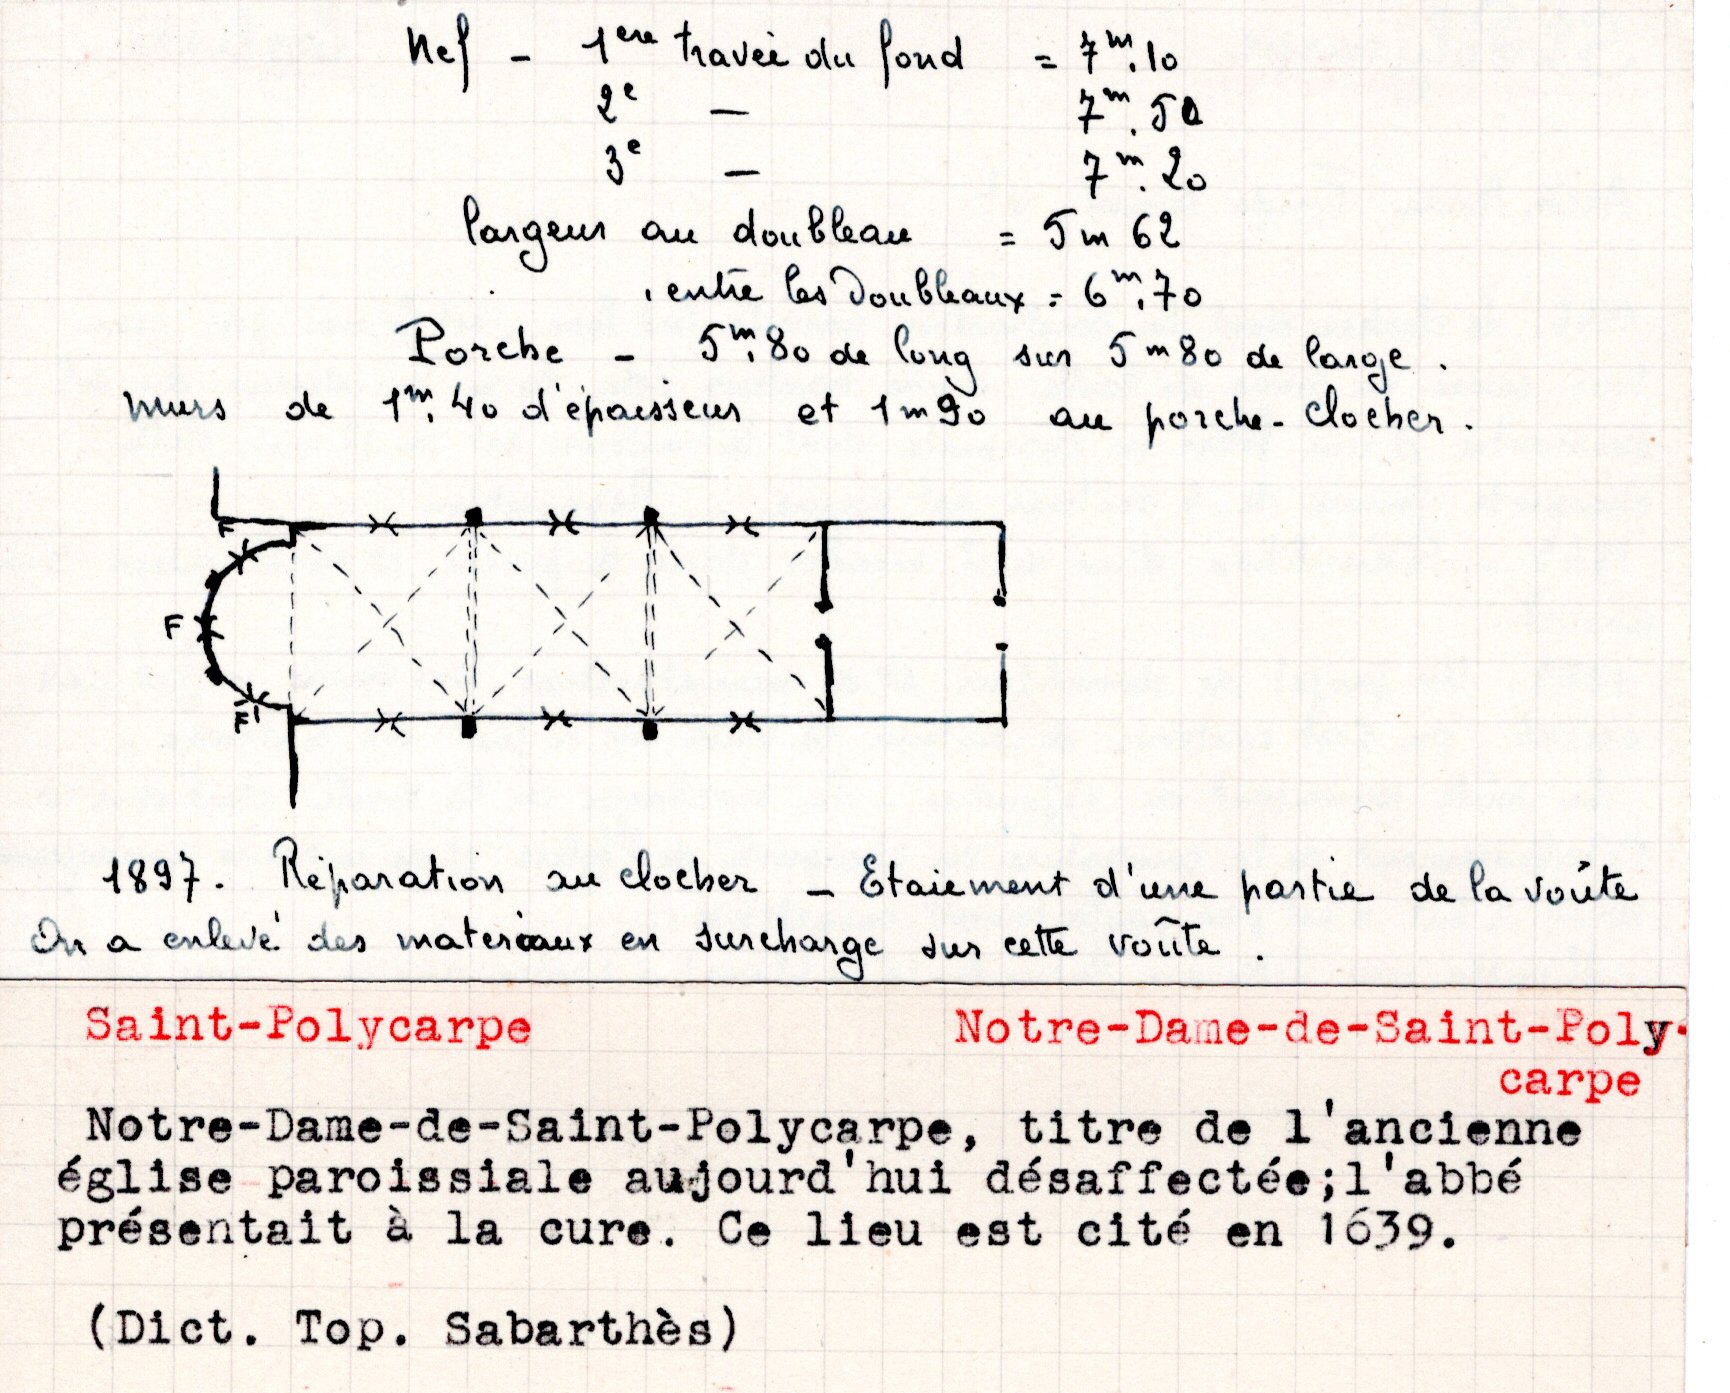 Nef - 1ere travée du fond = 7m.10
2e — 7m.50
3e — 7m.20
largeur au doubleau = 5m62
entre les doubleaux = 6m.70
Porche - 5m.80 de long sur 5m80 de large.
murs de 1m.40 d'épaisseur et 1m90 au porche-clocher.
F
F
F
1897. Réparation au clocher - Etaiement d'une partie de la voûte
On a enlevé des materiaux en surcharge sur cette voûte.
Saint-Polycarpe Notre-Dame-de-Saint-Poly-
carpe
Notre-Dame-de-Saint-Polycarpe, titre de l'ancienne
église paroissiale aujourd'hui désaffectée;l'abbé
présentait à la cure. Ce lieu est cité en 1639.
(Dict. Top. Sabarthès)